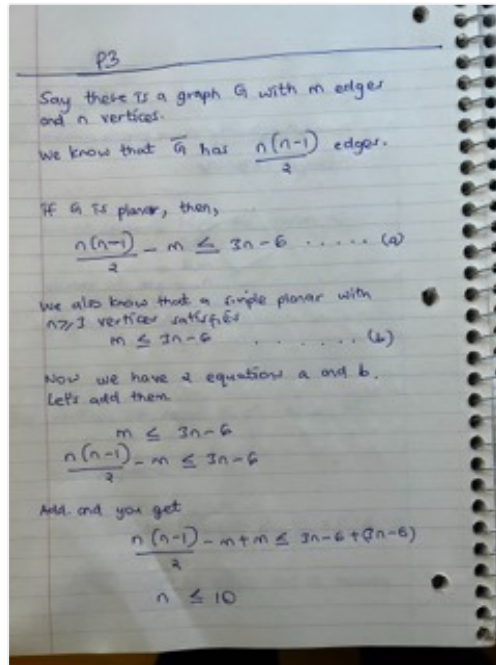 P3
Say there is a graph G with m edges
and n vertices.
We know that G̅ has n(n-1)/2 edges.
If G is planar, then,
n(n-1)/2 - m ≤ 3n-6 ..... (a)
We also know that a simple planar with
n≥3 vertices satisfies
m ≤ 3n-6 ....... (b)
Now we have 2 equations a and b.
Let's add them
m ≤ 3n-6
n(n-1)/2 - m ≤ 3n-6
Add and you get
n(n-1)/2 - m+m ≤ 3n-6+(3n-6)
n ≤ 10